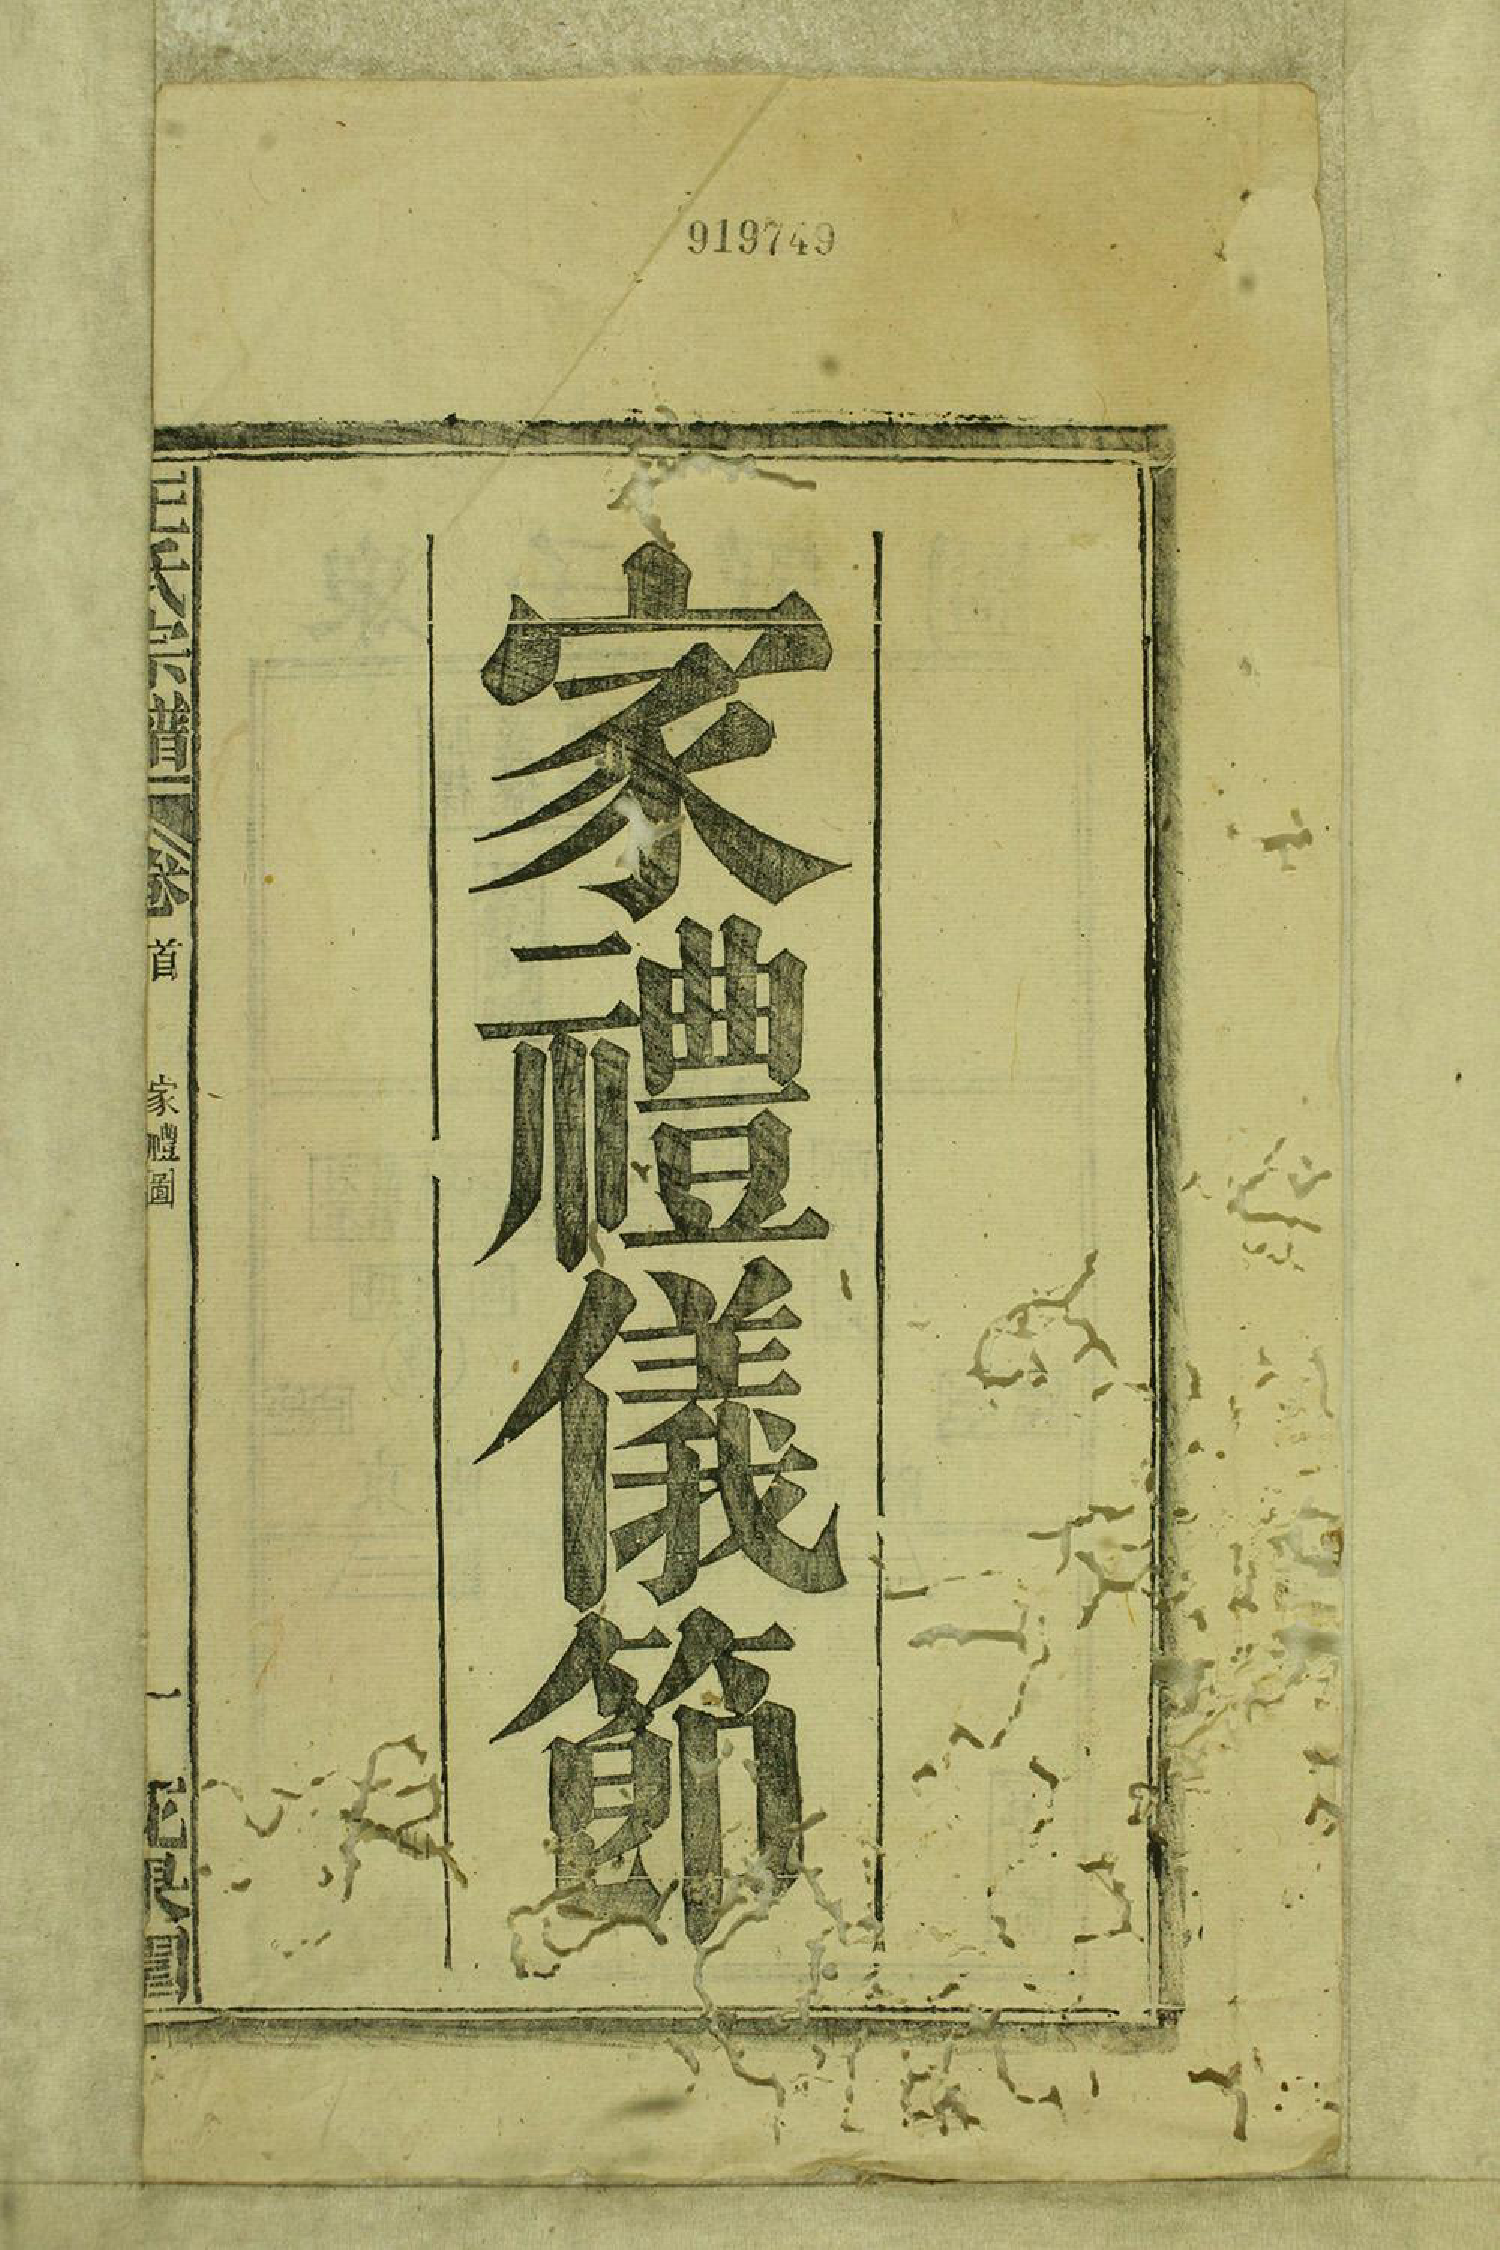 919749
家禮儀節
氏宗譜
卷首
家禮圖
一